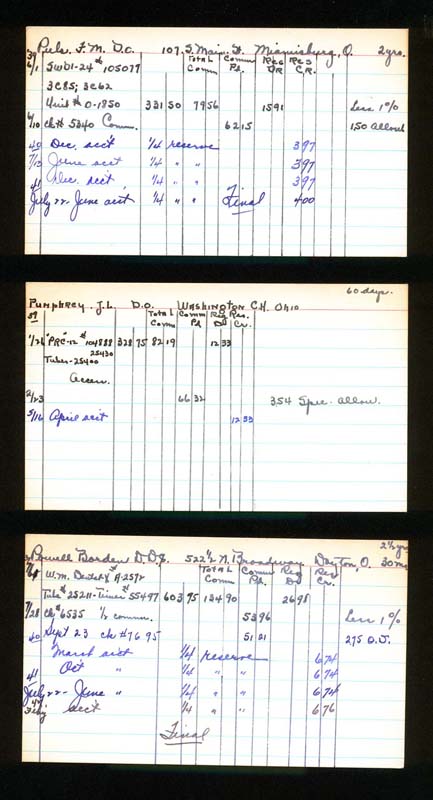 Pels, F. M. D.O. 107 S. Main St. Miamisburg, O. 2 yrs.
39 Total Comm Comm Pd. Res DR Res CR.
6/1 SWD1-24 # 105077
3C85; 3C62
Unit # 0-1850 331 50 79 56 15 91 Less 1%
6/10 ck # 5340 Comm. 62 15 1.50 allow
40 Dec. acct 1/4 reserve 3 97
7/13 June acct 1/4 " " 3 97
41 Dec. acct, 1/4 " " 3 97
July 22 - June acct 1/4 " " Final 4 00
60 days.
Pumphrey, J.L. D.O. Washington C.H. Ohio
39 Total Comm Comm Pd Res Dr Res. Cr.
1/26 "PRC"-12 # 104888 328 75 82 19 12 33
25430
Tubes-25400
Accen.
2/23 66 32 3.54 Spec. allow.
5/16 April acct 12 33
2 1/2 yrs
Powell Borden D.D.S. 522 1/2 N. Broadway Dayton, O. 30 mo
Total Comm Comm Pd. Res Dr Res Cr.
W.M. # A-2572
Tube # 25211-Timer # 55497 603 75 134 90 26 98
7/28 ck # 6535 1/2 comm. 53 96 Less 1%
40 Sept 23 ck # 7695 51 21 2.75 O.J.
March acct 1/4 reserve 6 74
41 Oct " 1/4 " " 6 74
July 22 - June " 1/4 " " 6 74
42 acct 1/4 " " 6 76
Final